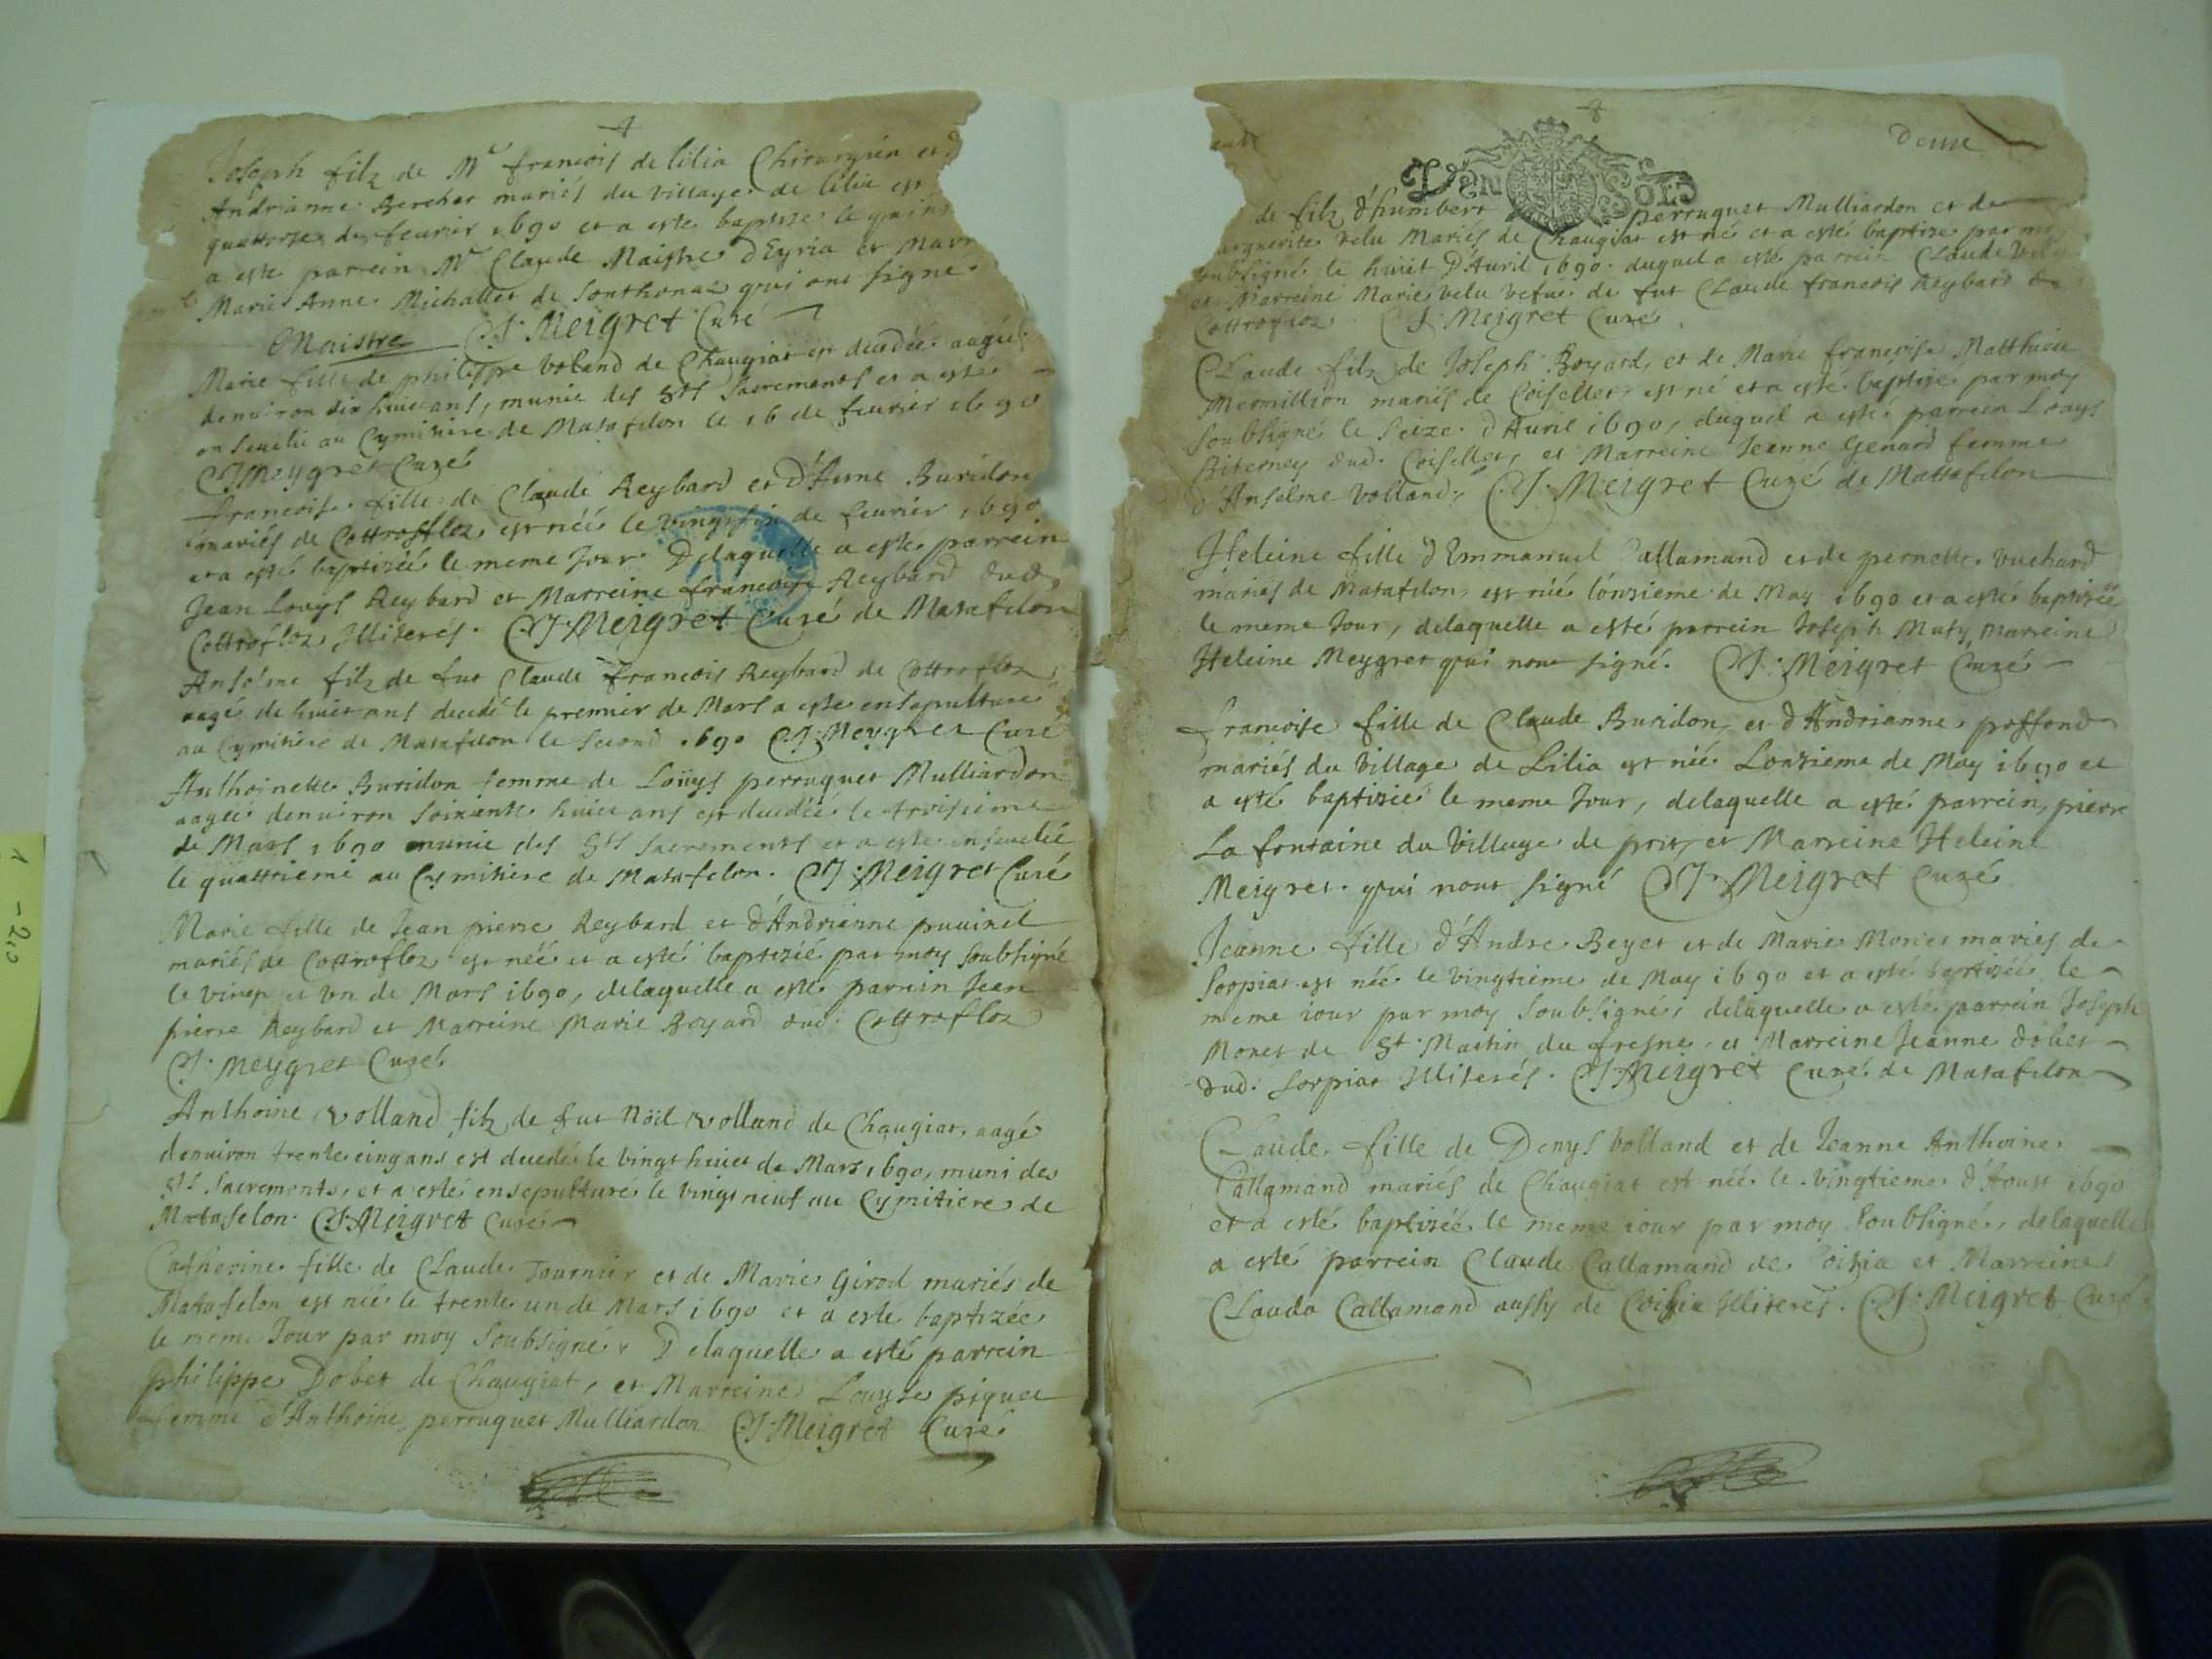 Joseph filz de Mre francois de lilia Chirurgien et d
Andrianne Berchet mariés du village de lilia est
quattorze de feurier 1690 et a esté baptizé le quins
a esté parrein Mre Claude Maistre d'Eyria et Marr
Marie Anne Michallet de Sonthonax qui ont signé
CMaistre CJ. Meigret Curé
Marie fille de philippe voland de Chaugiat est decedée aagée
denuiron dix huict ans, munie des Sts Sacrements et a esté
enseuelie au Cymitiere de Matafelon le 16 de feurier 1690
CJ Meygret Curé
francoise fille de Claude Reybard et d'Anne Buridon
mariés de Cottrofloz est née le vingt six de feurier 1690
et a esté baptizée le meme Jour. Delaquelle a esté parrein
Jean Louys Reybard et Marreine francoise Reybard dud.
Cottrofloz Illiterés. CJ. Meigret Curé de Matafelon
Anselme filz de fut Claude francois Reybard de Cottrofloz
aagé de huict ans decedé le premier de Mars a esté ensepulturé
au Cymitiere de Matafelon le second 1690 CJ. Meygret Curé
Anthoinette Buridon femme de Loüys perruquet Mulliardon
aagée denuiron soixante huict ans est decedée le troisieme
de Mars 1690 munie des Sts Sacrements et a esté enseuelie
le quattrieme au Cymitiere de Matafelon. CJ. Meigret Curé
Marie fille de Jean pierre Reybard et d'Andrianne puuinel
mariés de Cottrofloz est née et a esté baptizée par moy soubsigné
le vingt et vn de Mars 1690, delaquelle a esté parrein Jean
pierre Reybard et Marreine Marie Boyard dud. Cottrofloz
CJ. Meygret Curé
Anthoine volland filz de fut Noël volland de Chaugiat, aagé
denuiron trente cinq ans est decedé le vingt huict de Mars 1690, muni des
Sts Sacrements, et a esté ensepulturé le vingt neuf au Cymitiere de
Matafelon. CJ. Meigret Curé
Catherine fille de Claude Tournier et de Marie Girod mariés de
Matafelon est née le trente un de Mars 1690 et a esté baptizée
le meme Jour par moy soubsigné. Delaquelle a esté parrein
philippe Dobet de Chaugiat, et Marreine Louyse piquet
femme d'Anthoine perruquet Mulliardon CJ. Meigret Curé
deux
DEN SOLS
de filz d'humbert perruquet Mulliardon et de
arguerite velu Mariés de Chaugiat est né et a esté baptizé par mo
soubsigné le huict D'Auril 1690. duquel a esté parrein Claude
et Marreine Marie velu vefue de fut Claude francois Reybard de
Cottrofloz CJ. Meigret Curé
Claude filz de Joseph Boyard, et de Marie francoise Matthieu
Mermillion mariés de Coiselley, est né et a esté baptizé par moy
soubsigné le seize d'Auril 1690, duquel a esté parrein Louys
Biterney dud. Coiselley, et Marreine Jeanne Genard femme
d'Anselme volland, CJ. Meigret Curé de Mattafelon
Heleine fille d'Emmanuel Callamand et de pernette vuchard
mariés de Matafelon, est née l'onzieme de May 1690 et a esté baptizée
le meme Jour, delaquelle a esté parrein Joseph Muty Marreine
Heleine Meygret qui nont signé. CJ. Meigret Curé
francoise fille de Claude Buridon, et d'Andrianne poffond
mariés du Village de Lilia est née Lonzieme de May 1690 et
a esté baptizée le meme Jour, delaquelle a esté parrein, pierre
La fontaine du Village de prit, et Marreine Heleine
Meigret. qui nont signé CJ. Meigret Curé
Jeanne fille d'Andre Beyet et de Marie Monet mariés de
Sorpiat est née le vingtieme de May 1690 et a esté baptizée le
meme iour par moy soubsigné, delaquelle a esté parrein Joseph
Monet de St. Martin du fresne, et Marreine Jeanne dobet
dud. Sorpiat Illiterés. CJ. Meigret Curé de Matafelon
Claude fille de Denys volland et de Jeanne Anthoine
Callamand mariés de Chaugiat est née le vingtieme d'Aoust 1690
et a esté baptizée le meme iour par moy soubsigné, delaquelle
a esté parrein Claude Callamand de Coisia et Marreine
Clauda Callamand aussy de Coisia Illiterés. CJ. Meigret Curé